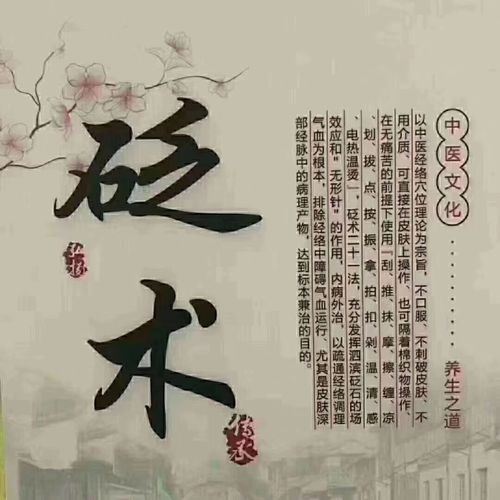 中医文化
养生之道
以中医经络穴位理论为宗旨,不口服、不刺破皮肤、不
用介质、可直接在皮肤上操作、也可隔着棉织物操作,
在无痛苦的前提下使用『刮、推、抹、摩、擦、缠、凉
、划、拔、点、按、振、拿、拍、扣、剁、温、清、感
、电热温烫』,砭术二十一法,充分发挥泗滨砭石的场
效应和"无形针"的作用,内病外治,以疏通经络调理
气血为根本,排除经络中障碍气血运行、尤其是皮肤深
部经脉中的病理产物,达到标本兼治的目的。
砭术
弘揚
傳承